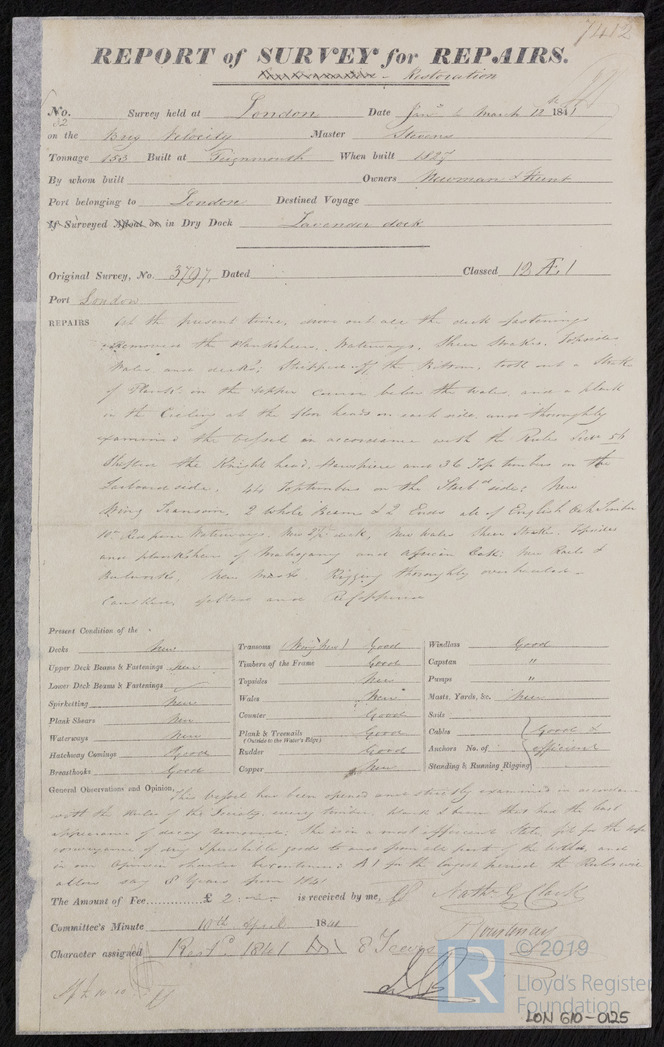 7412
REPORT of SURVEY for REPAIRS.
Restoration
No. 32 Survey held at London Date Jany 6 March 12th 1841
on the Brig Velocity Master Stevens
Tonnage 153 Built at Teignmouth When built 1827
By whom built Owners Newman & Hunt
Port belonging to London Destined Voyage
If Surveyed Afloat or in Dry Dock Lavender dock
Original Survey, No. 3797, Dated Classed 12 Æ 1
Port London
REPAIRS At the present time, drove out all the deck fastenings
removed the Planksheers, Waterways, Sheer Strakes, Topsides
Wales and decks; Stripped off the Bottom, took out a Strake
of Plank in the upper course below the wales, and a plank
in the Ceiling at the floor heads on each side, and thoroughly
examined the Vessel in accordance with the Rules Secn 56
Shifted the Knight head, Hawspiece and 36 Top timbers on the
Larboard side, 44 Toptimbers on the Starbd side; New
Wing Transom, 2 Whole Beams & 2 Ends all of English Oak Timber
Red pine Waterways, New deck, New Wales Sheer Strakes, Topsides
and planksheer of Mahogany and African Oak; New Rails &
Bulwarks, New Masts Rigging thoroughly overhauled
Caulked, felted and Recoppered
Present Condition of the
Decks New
Upper Deck Beams & Fastenings New
Lower Deck Beams & Fastenings
Spirketting New
Plank Shears New
Waterways New
Hatchway Comings Good
Breasthooks Good
Transoms (Wing New) Good
Timbers of the Frame Good
Topsides New
Wales New
Counter Good
Plank & Treenails Good
(Outside to the Water's Edge)
Rudder Good
Copper New
Windlass Good
Capstan "
Pumps "
Masts, Yards, &c. New
Sails
Cables Good &
Anchors No. of efficient
Standing & Running Rigging
General Observations and Opinion, This Vessel has been opened and strictly examined in accordance
with the Rules of the Society, every timber, plank & beam that had the least
appearance of decay removed; She is in a most efficient state, fit for the safe
conveyance of dry & perishable goods to and from all parts of the World, and
in our Opinion should be continued A1 for the longest period the Rules will
allow say 8 Years from 1841
The Amount of Fee £ 2 is received by me, Nathl G Clark
Committee's Minute 10th April 1841 Courtenay
Character assigned Restd 1841 8 Years
© 2019
LR
Lloyd's Register
Foundation
LON 610-0125